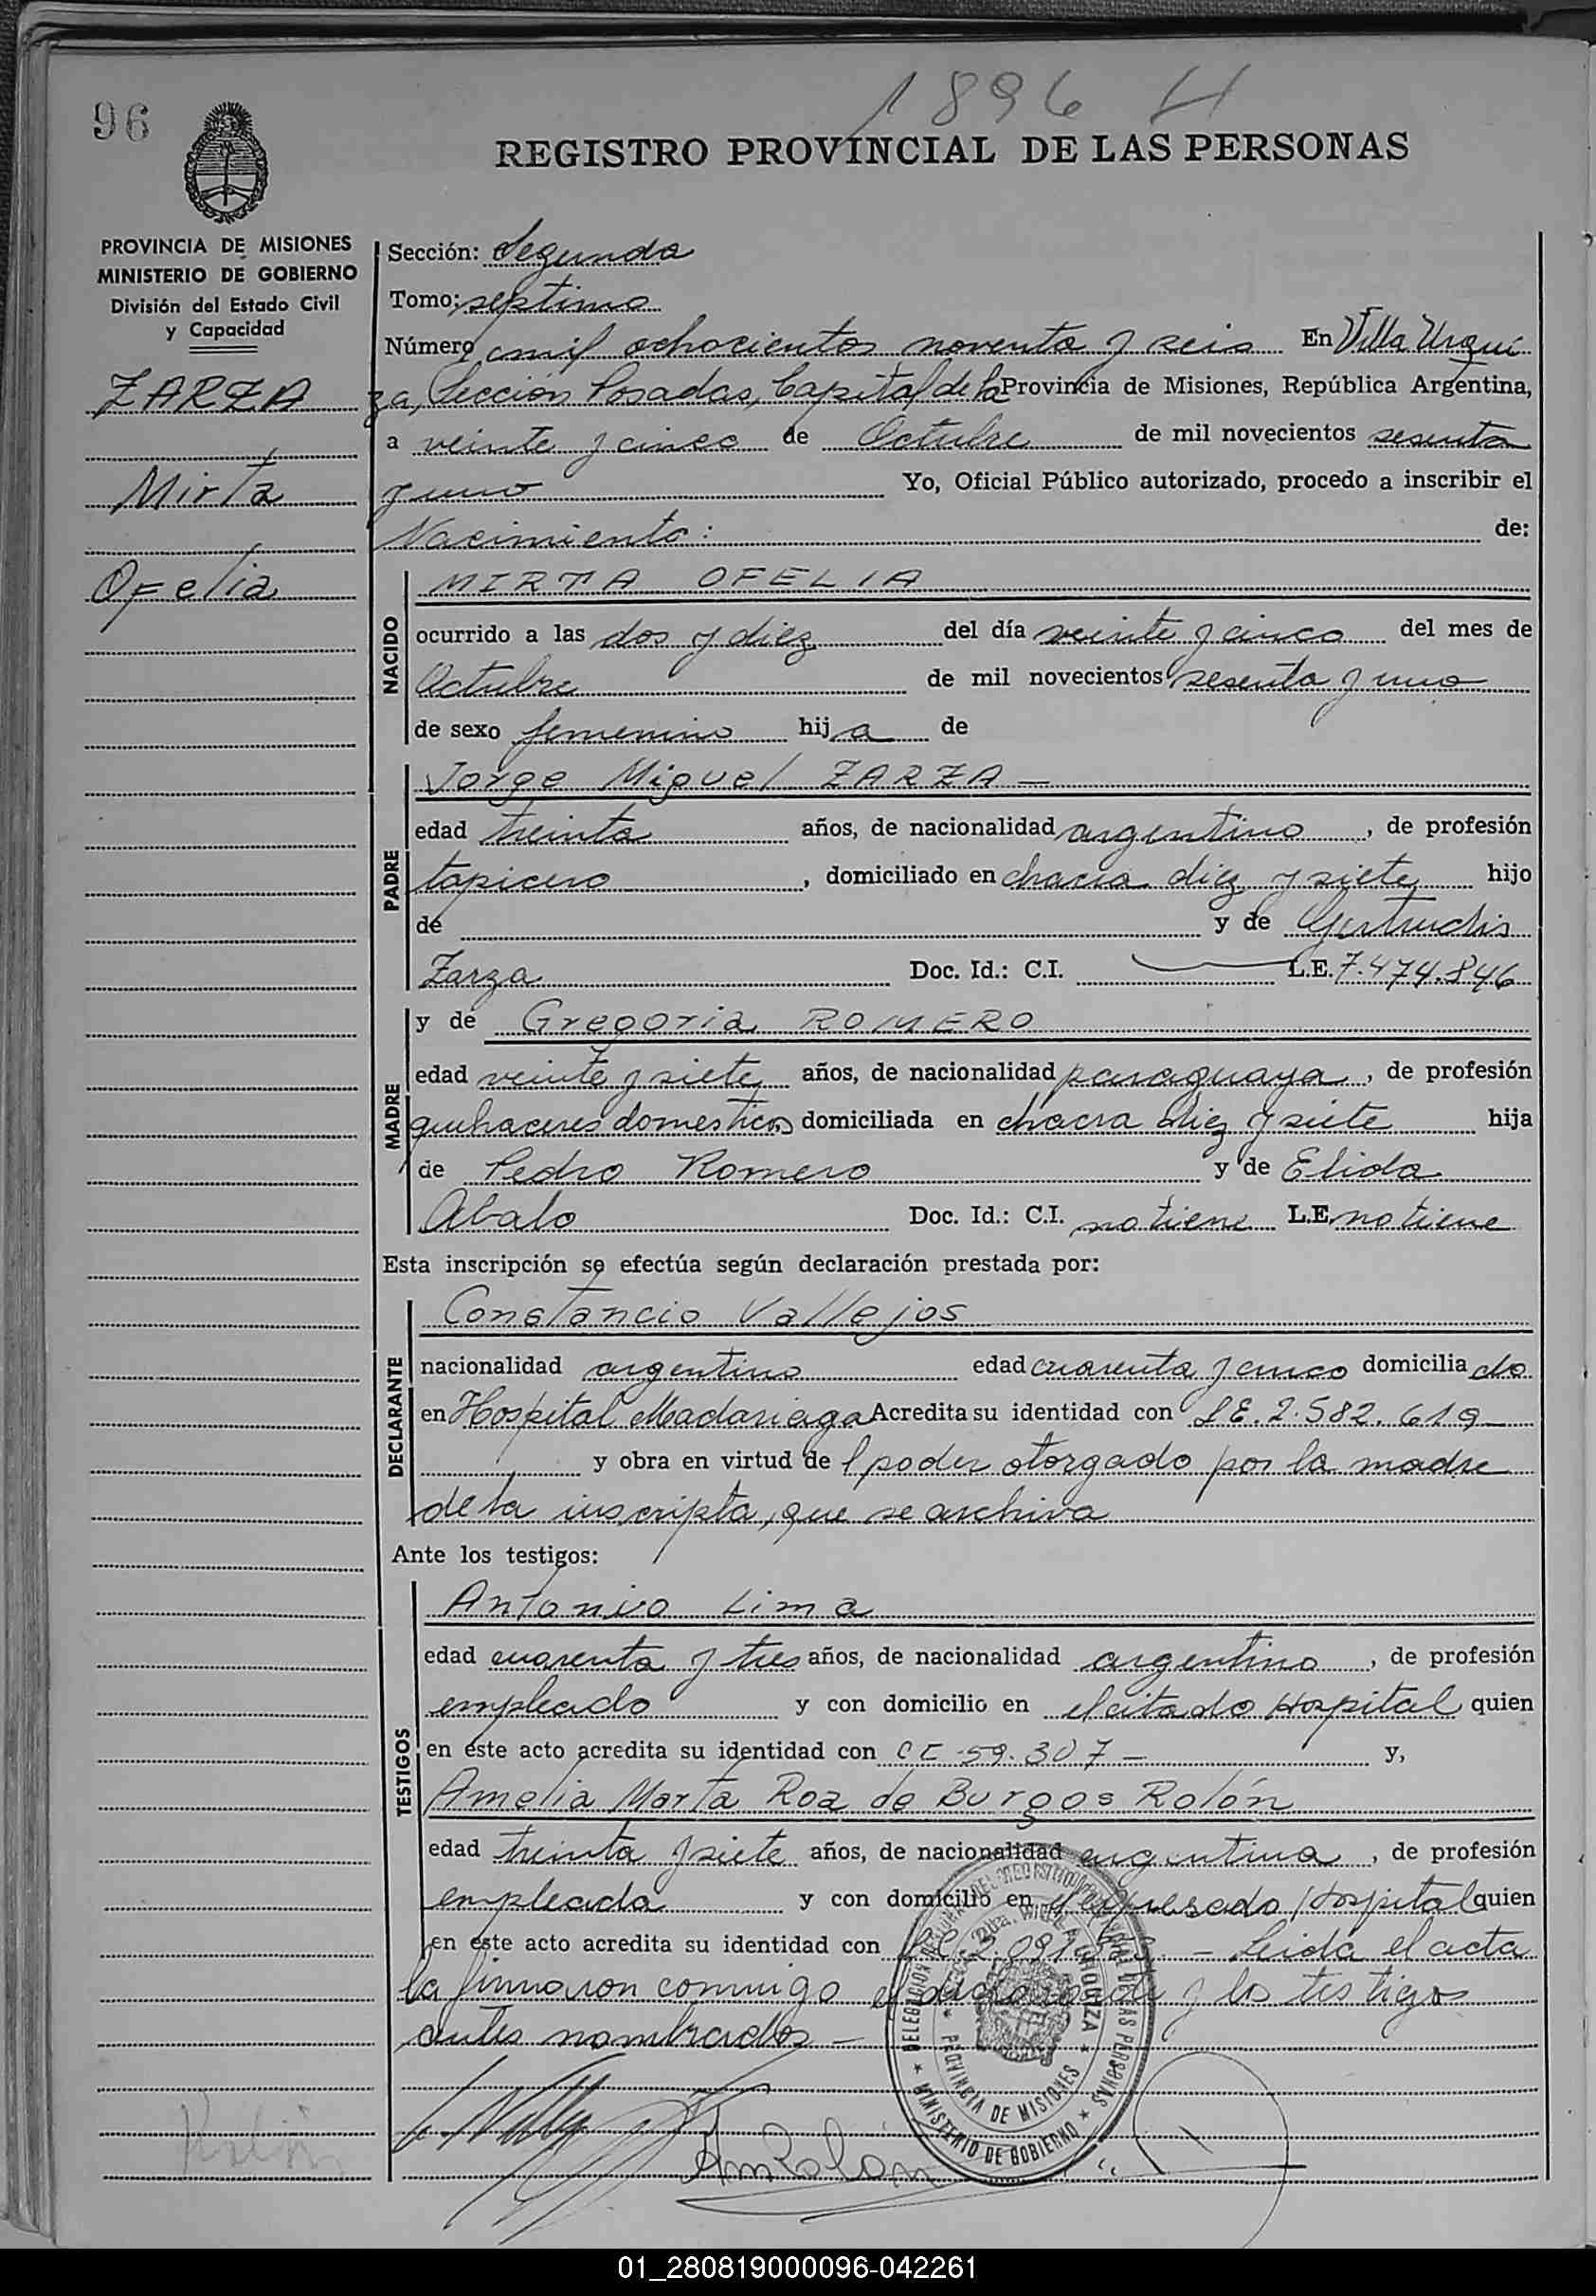 1896 H
96
REGISTRO PROVINCIAL DE LAS PERSONAS
PROVINCIA DE MISIONES
MINISTERIO DE GOBIERNO
División del Estado Civil
y Capacidad
ZARZA
Mirta
Ofelia
Sección: Segunda
Tomo: septimo
Número mil ochocientos noventa y seis En Villa Urqui
za, Sección Posadas, Capital de la Provincia de Misiones, República Argentina,
a veinte y cinco de Octubre de mil novecientos sesenta
y uno Yo, Oficial Público autorizado, procedo a inscribir el
Nacimiento: de:
NACIDO
MIRTA OFELIA
ocurrido a las dos y diez del día veinte y cinco del mes de
Octubre de mil novecientos sesenta y uno
de sexo femenino hija de
PADRE
Jorge Miguel ZARZA —
edad treinta años, de nacionalidad argentino, de profesión
tapicero, domiciliado en chacra diez y siete hijo
de y de Gertrudis
Zarza Doc. Id.: C.I. — L.E. 7.474.846
MADRE
y de Gregoria ROMERO
edad veinte y siete años, de nacionalidad paraguaya, de profesión
quehaceres domesticos domiciliada en chacra diez y siete hija
de Pedro Romero y de Elida
Abalo Doc. Id.: C.I. no tiene L.E. no tiene
Esta inscripción se efectúa según declaración prestada por:
DECLARANTE
Constancio Vallejos
nacionalidad argentino edad cuarenta y cinco domiciliado
en Hospital Madariaga Acredita su identidad con LE. 2.582.619
y obra en virtud del poder otorgado por la madre
de la inscripta, que se archiva
Ante los testigos:
TESTIGOS
Antonio Lima
edad cuarenta y tres años, de nacionalidad argentino, de profesión
empleado y con domicilio en el citado Hospital quien
en este acto acredita su identidad con CI. 59.307 — y,
Amelia Marta Roa de Burgos Rolón
edad treinta y siete años, de nacionalidad argentina, de profesión
empleada y con domicilio en el expresado Hospital quien
en este acto acredita su identidad con — Leida el acta
la firmaron conmigo el declarante y los testigos
antes nombrados —
MINISTERIO DE GOBIERNO
PROVINCIA DE MISIONES
AmRolón
Rolón
01_280819000096-042261